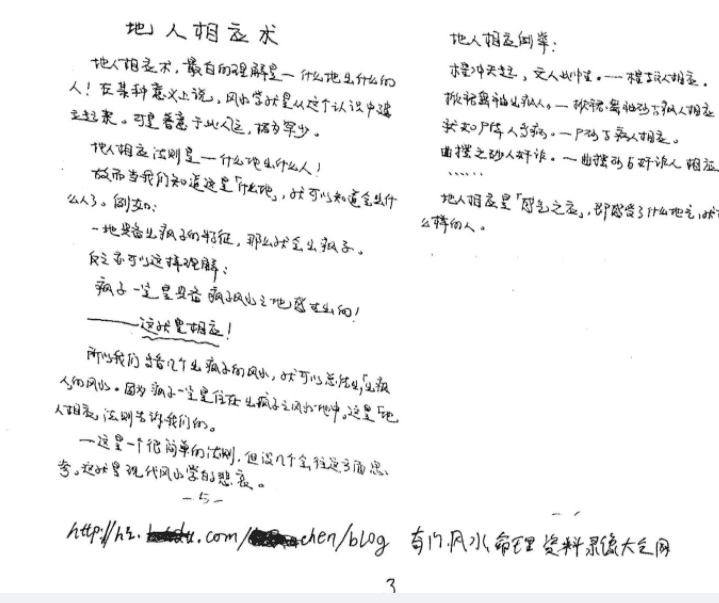 地人相应术
地人相应术，最白的理解是一什么地出什么的
人！在某种意义上说，风水学就是从这个认识中建
立起来。可是着意于此人这，据为罕少。
地人相应法则是一什么地出什么人！
故而当我们知道这是「什么地」，就可以知道会出什
么人了。例如：
一地具备出疯子的特征，那么就会出疯子。
反之亦可以这样理解：
疯子一定是具备疯子风水之地感生出的！
——这就是相应！
所以我们多看几个出疯子的风水，就可以总结出「出疯
人的风水。因为疯子一定是住在出疯子之风水地中。这是「地
人相应」法则告诉我们的。
一这是一个很简单的法则，但没几个会往这方面思
考。这就是现代风水学的悲哀。
-5-
地人相应例举：
冲天起，文人此中生。一
掀裙舞袖出乱人。一掀裙舞袖砂与乱人相应
状如尸体人多病。一尸砂与病人相应。
曲摆之砂人奸诈。一曲摆砂与奸诈人相应
……
地人相应是「感气之应」，即感受了什么地气，就
么样的人。
http://hi. .com/ chen/blog 奇门风水命理资料录像大全网
3